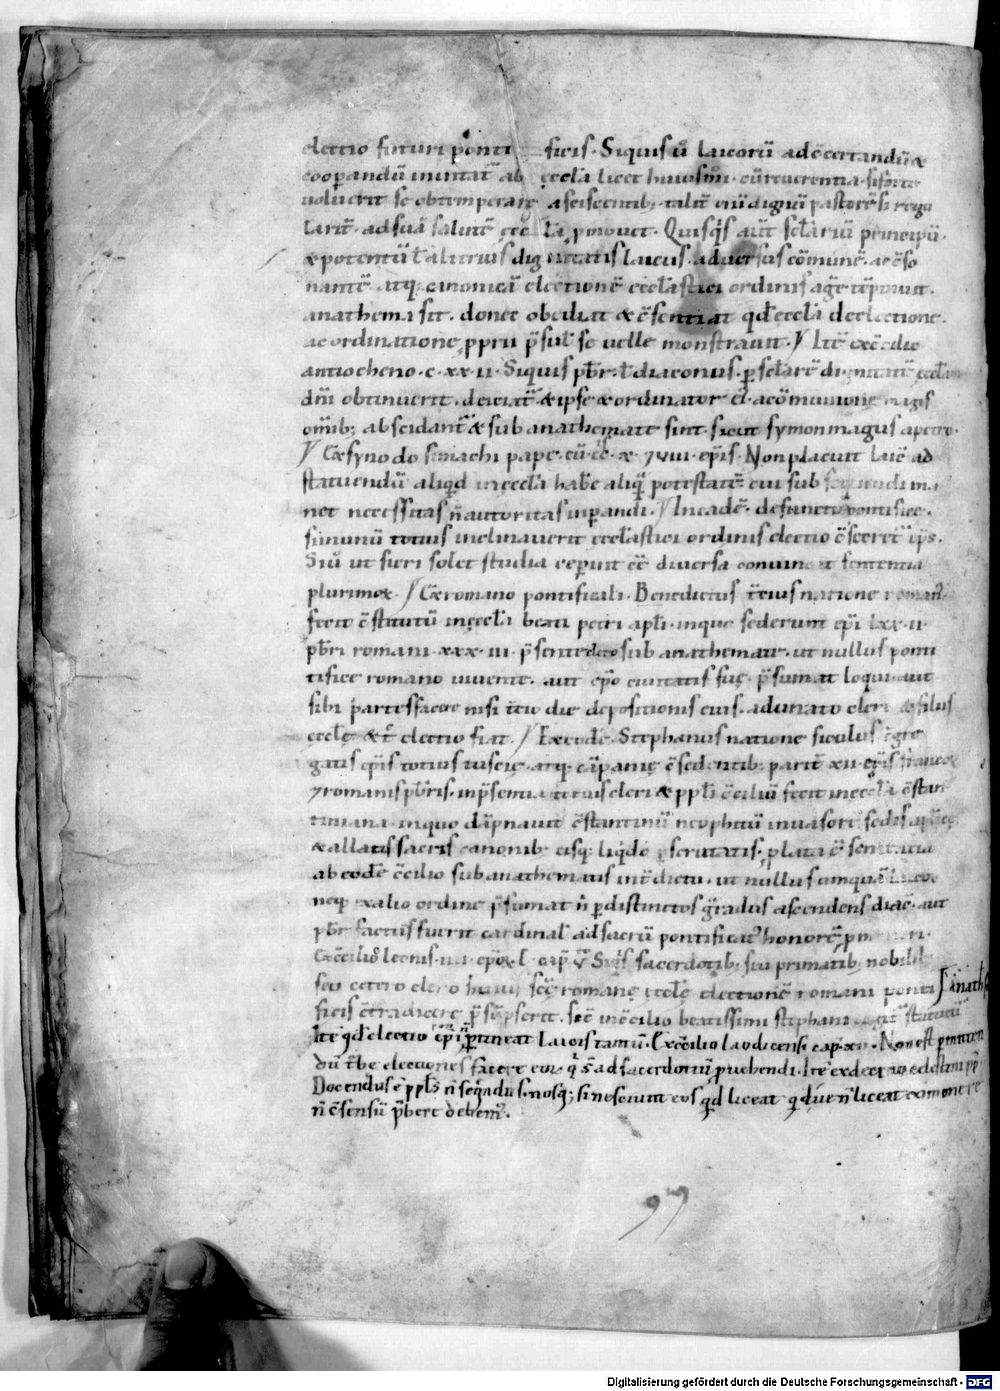 electio futuri ponti ficis. Siquis ů laicorū ad c̄certandū &
coop̱andū inuitat᷒ ab ęccl̄a licet huiusm̄i. cū reuerentia si forte
uoluerit se obtemperare asciscentib;
larit̄. ad suā salutē ęccl̄ia p̱mouet. Quisq̇s aut̄ sc̄lariū principū.
& potentū ł alterius dignitatis laicus. aduersus cōmunē. ac c̄so
nantē atq. canonicā electionē eccl̄astici ordinis agere tēptauit.
anathema sit. donec obediat & c̄sentiat qd̄ eccl̄a de electione.
ac ordinatione p̱prii p̄sulis se uelle monstrauit. Itē ex c̄cilio
antiocheno. c. xx. ii. Siquis pbr̄. ł diaconus. p̱ sc̄larē dignitatē eccl̄am
dn̄i obtinuerit. deiciat᷒ & ipse & ordinator ei. a cōmunione magis
om̄ib; abscidant᷒ & sub anathemate sint. sicut symon magus a petro.
Ex synodo simachi pape. cū c̄c. x. 7 viii. ep̄is. Non placuit laic̄ ad
statuendū aliq̇d in eccl̄a hab̄e aliq̄ potestatē cui subsequendi ma
net necessitas n̄ auctoritas inp̱andi. In eadē. defuncto pontifice.
si in unū totius inclinauerit eccl̄astici ordinis electio c̄secret᷒ ep̄s.
Siů ut fieri solet studia cep̱int ēē diuersa conuincat sententia
plurimox. Ex romano pontificali. Benedictus t̄cius natione roman᷒.
fecit c̄stitutū in eccl̄a beati petri apl̄i. in quo sederunt ep̄i lxx. ii
pbr̄i romani. xxx. iii p̄sente clero sub anathemate. ut nullus ponti
tifice romano uiuente. aut ep̄o ciuitatis suę. p̄sumat loqui. aut
sibi partes facere nisi t̄cio die depositionis eius. adunato clero & filiis
eccl̄ę & t̄c electio fiat. Ex eodē. Stephanus natione siculus c̄gre
gatis ep̄is totius tuscię. atq. cāpanię c̄sedentib; parit̄ xii. ep̄is francox
7 romanis pbr̄is. in p̄sentia totius cleri & ppl̄i c̄ciliū fecit in eccl̄a c̄stan
tiniana. in quo dāpnauit c̄stantinū neophitū inuasorē sedis apl̄icę.
& allatis sacris canonib; eisq; liq̇de p̱scrutatis. p̱lata ē sententia
ab eodē c̄cilio sub anathematis int̄dictu. ut nullus umquā laicox
neq. ex alio ordine p̄sumat n̄ p̱ distinctos gradus ascendens diac̄. aut
pbr̄ factus fuerit cardinal᷒ ad sacrū pontificat᷒ honorē p̱moueri.
Siq̇s sacerdotib; seu primatib; nobilib;
seu cetero clero huius scę romanę eccl̄ę electionē romani ponti anath̄ s̄
ficis c̄tradicere p̄sūpserit. sic̄ in c̄cilio beatissimi stephani statutū
Itē qd̄ electio ep̄i p̱tineat laicis tantū. Ex c̄cilio laodicensi cap̄. xii. Non est p̱mitten
dū t᷒be electiones facere eox q̇ s̄ ad sacerdotiū p̱uehendi. Itē ex decreto celestini pp̄
Docendus ē ppl̄s n̄ seq̄ndus. nosq; si nesciunt eos q̇d liceat q̇due n̄ liceat cōmonere
n̄ c̄sensū p̄bere debem᷒.
97
Digitalisierung gefördert durch die Deutsche Forschungsgemeinschaft - DFG